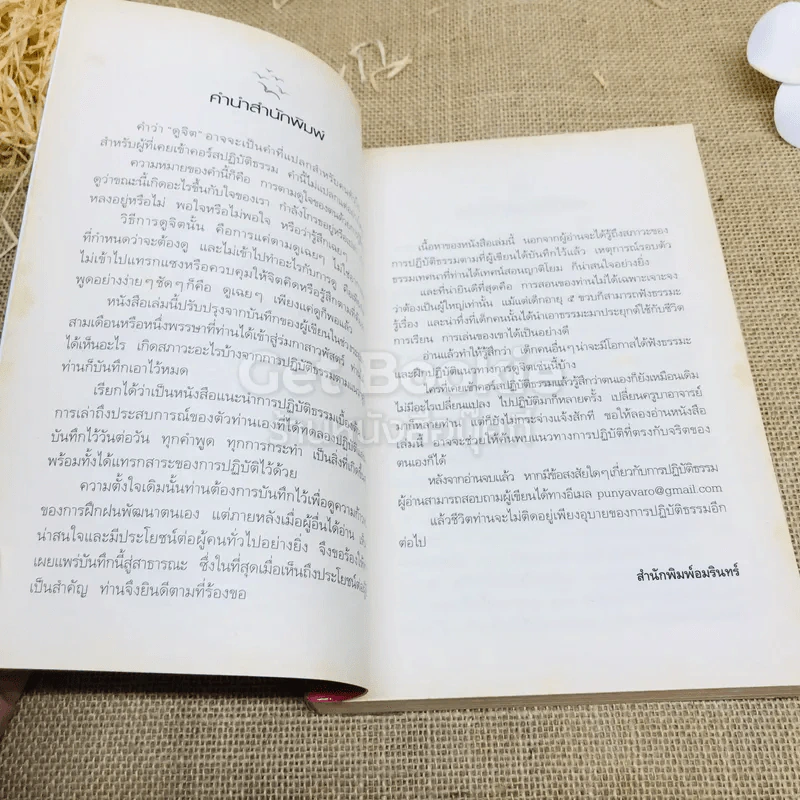 คำนำสำนักพิมพ์
คำว่า "ดูจิต" อาจจะเป็นคำที่แปลกสำหรับคน
สำหรับผู้ที่เคยเข้าคอร์สปฏิบัติธรรม คำนี้ไม่แปลก
ความหมายของคำนี้ก็คือ การตามดูใจของตน
ดูว่าขณะนี้เกิดอะไรขึ้นกับใจของเรา กำลังโกรธอยู่หรือ
หลงอยู่หรือไม่ พอใจหรือไม่พอใจ หรือว่ารู้สึกเฉยๆ
วิธีการดูจิตนั้น คือการแค่ตามดูเฉยๆ ไม่ใช่
ที่กำหนดว่าจะต้องดู และไม่เข้าไปทำอะไรกับการดู คือ
ไม่เข้าไปแทรกแซงหรือควบคุมให้จิตคิดหรือรู้สึกตาม
พูดอย่างง่ายๆ ชัดๆ ก็คือ ดูเฉยๆ เพียงแค่ดูก็พอแล้ว
หนังสือเล่มนี้ปรับปรุงจากบันทึกของผู้เขียนในช่วง
สามเดือนหรือหนึ่งพรรษาที่ท่านได้เข้าสู่ร่มกาสาวพัสตร์
ได้เห็นอะไร เกิดสภาวะอะไรบ้างจากการปฏิบัติธรรมตาม
ท่านก็บันทึกเอาไว้หมด
เรียกได้ว่าเป็นหนังสือแนะนำการปฏิบัติธรรมเบื้องต้น
การเล่าถึงประสบการณ์ของตัวท่านเองที่ได้ทดลองปฏิบัติ
บันทึกไว้วันต่อวัน ทุกคำพูด ทุกการกระทำ เป็นสิ่งที่เกิด
พร้อมทั้งได้แทรกสาระของการปฏิบัติไว้ด้วย
ความตั้งใจเดิมนั้นท่านต้องการบันทึกไว้เพื่อดูความก้าว
ของการฝึกฝนพัฒนาตนเอง แต่ภายหลังเมื่อผู้อื่นได้อ่าน
น่าสนใจและมีประโยชน์ต่อผู้คนทั่วไปอย่างยิ่ง จึงขอร้องให้
เผยแพร่บันทึกนี้สู่สาธารณะ ซึ่งในที่สุดเมื่อเห็นถึงประโยชน์ต่อ
เป็นสำคัญ ท่านจึงยินดีตามที่ร้องขอ
เนื้อหาของหนังสือเล่มนี้ นอกจากผู้อ่านจะได้รู้ถึงสภาวะของ
การปฏิบัติธรรมตามที่ผู้เขียนได้บันทึกไว้แล้ว เหตุการณ์รอบตัว
ธรรมเทศนาที่ท่านได้เทศน์สอนญาติโยม ก็น่าสนใจอย่างยิ่ง
และที่น่ายินดีที่สุดคือ การสอนของท่านไม่ได้เฉพาะเจาะจง
ว่าต้องเป็นผู้ใหญ่เท่านั้น แม้แต่เด็กอายุ ๕ ขวบก็สามารถฟังธรรมะ
รู้เรื่อง และน่าทึ่งที่เด็กคนนั้นได้นำเอาธรรมะมาประยุกต์ใช้กับชีวิต
การเรียน การเล่นของเขาได้เป็นอย่างดี
อ่านแล้วทำให้รู้สึกว่า เด็กคนอื่นๆ น่าจะมีโอกาสได้ฟังธรรมะ
และฝึกปฏิบัติแนวทางการดูจิตเช่นนี้บ้าง
ใครที่เคยเข้าคอร์สปฏิบัติธรรมแล้วรู้สึกว่าตนเองก็ยังเหมือนเดิม
ไม่มีอะไรเปลี่ยนแปลง ไปปฏิบัติมาก็หลายครั้ง เปลี่ยนครูบาอาจารย์
มาก็หลายท่าน แต่ก็ยังไม่กระจ่างแจ้งสักที ขอให้ลองอ่านหนังสือ
เล่มนี้ อาจจะช่วยให้ค้นพบแนวทางการปฏิบัติที่ตรงกับจริตของ
ตนเองก็ได้
หลังจากอ่านจบแล้ว หากมีข้อสงสัยใดๆ เกี่ยวกับการปฏิบัติธรรม
ผู้อ่านสามารถสอบถามผู้เขียนได้ทางอีเมล punyavaro@gmail.com
แล้วชีวิตท่านจะไม่ติดอยู่เพียงอุบายของการปฏิบัติธรรมอีก
ต่อไป
สำนักพิมพ์อมรินทร์